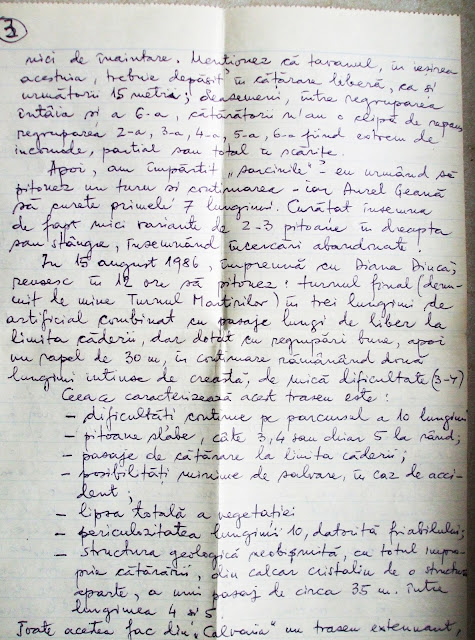 3
nici de înaintare. Menționez că tavanul, în ieșirea
acestuia, trebuie depășit în cățărare liberă, ca și
următorii 15 metri; deasemeni, între regruparea
întâia și a 6-a, cățărătorii n'au o clipă de repaus
regruparea 2-a, 3-a, 4-a, 5-a, 6-a fiind extrem de
incomode, parțial sau total în scărițe.
Apoi, am împărțit „sarcinile" - eu urmând să
pitonez un turn și continuarea - iar Aurel Geană
să curețe primele 7 lungimi. Curățat însemna
de fapt mici variante de 2-3 pitoane în dreapta
sau stânga, însemnând încercări abandonate
În 15 august 1986, împreună cu Diana Dincă,
reusesc în 12 ore să pitonez: turnul final (denu-
mit de mine Turnul Martirilor) în trei lungimi de
artificial combinat cu pasaje lungi de liber la
limita căderii, dar dotat cu regrupări bune, apoi
un rapel de 30 m, în continuare rămânând două
lungimi întinse de creastă, de mică dificultate (3-4)
Ceea ce caracterizează acest traseu este:
- dificultăți continue pe parcursul a 10 lungimi
- pitoane slabe, câte 3, 4 sau chiar 5 la rând;
- pasaje de cățărare la limita căderii;
- posibilități minime de salvare, în caz de acci-
dent;
- lipsa totală a vegetației
- periculozitatea lungimii 10, datorită friabilului;
- structura geologică neobișnuită, cu totul impro-
prie cățărării, din calcar cristalin de o structură
aparte, a unui pasaj de circa 35 m. între
lungimea 4 și 5
Toate acestea fac din „Calvaria" un traseu extenuant,